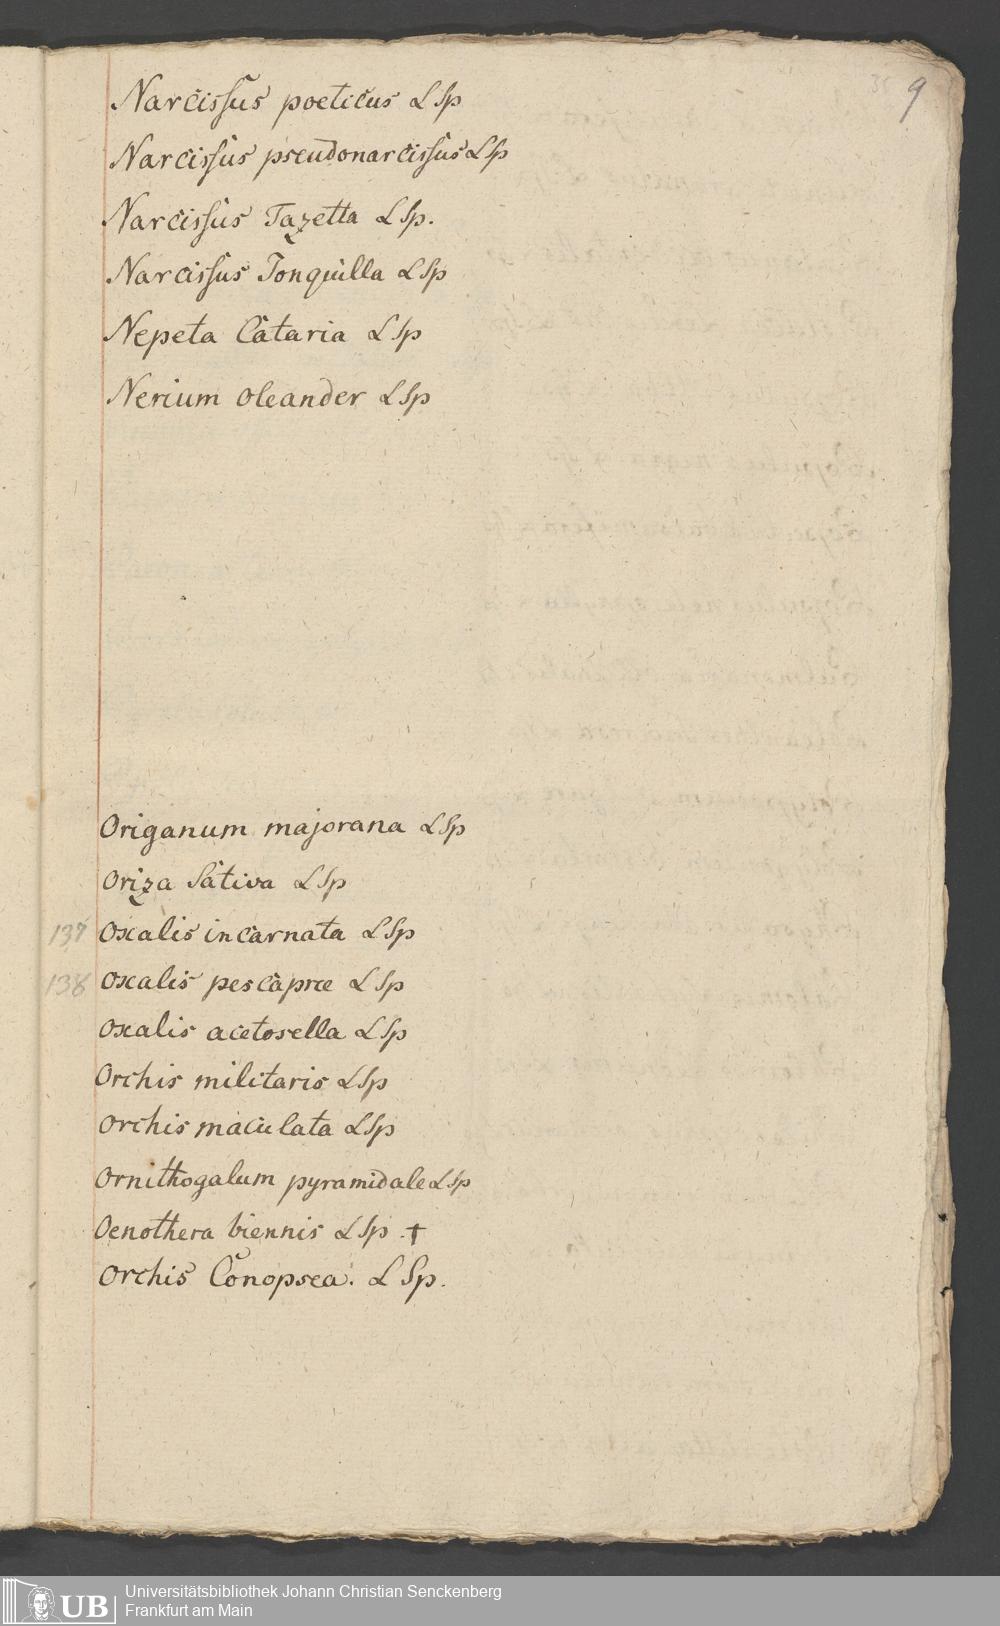 9
Narcissus poeticus L Sp
Narcissus pseudonarcissus L Sp
Narcissus Tazetta L Sp.
Narcissus Jonquilla L Sp
Nepeta Cataria L Sp
Nerium oleander L Sp
Origanum majorana L Sp
Oriza Sativa L Sp
137 Oxalis incarnata L Sp
138 Oxalis pes capræ L Sp
Oxalis acetosella L Sp
Orchis militaris L Sp
Orchis maculata L Sp
Ornithogalum pyramidale L Sp
Oenothera biennis L Sp. †
Orchis Conopsea. L Sp.
UB
Universitätsbibliothek Johann Christian Senckenberg
Frankfurt am Main